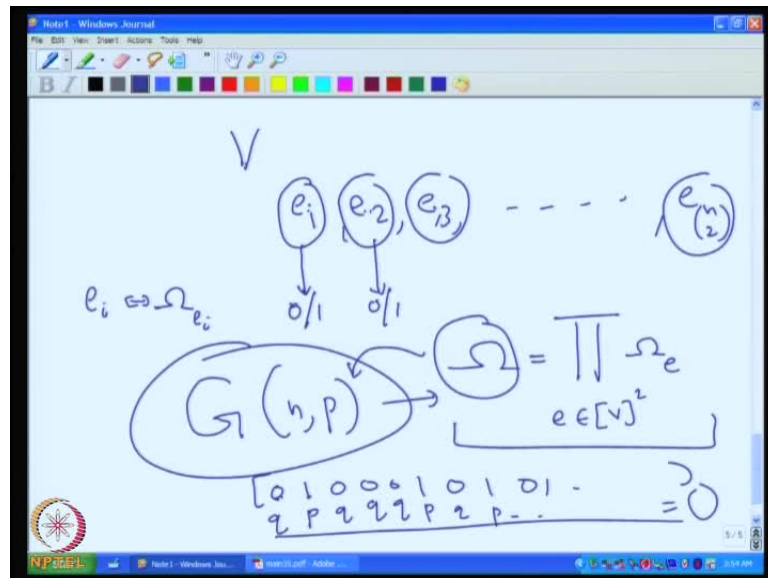 Note1 - Windows Journal
File Edit View Insert Actions Tools Help
B I
V
e_1, e_2, e_3, - - - - , e_(n 2)
0/1 0/1
e_i ⇔ Ω_{e_i}
G(n,p) → Ω = ∏ Ω_e
e ∈ [V]^2
[0 1 0 0 0 1 0 1 01 -
q p q q q p q p - . .
= 0
5/5
NPTEL
Note1 - Windows Jou...
main10.pdf - Adobe ...
3:59 AM